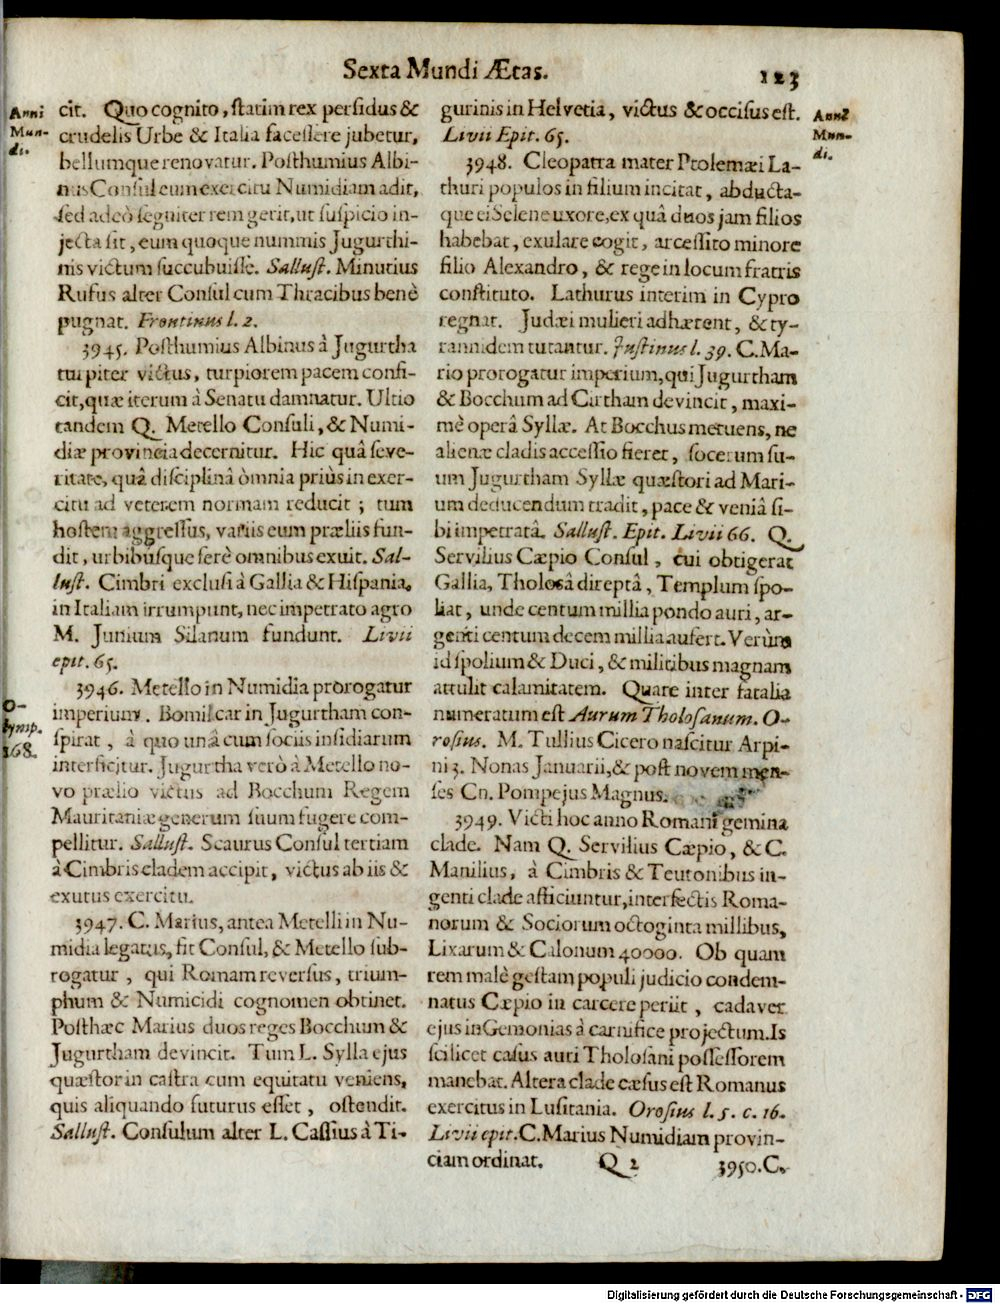 Sexta Mundi Ætas.
123
Anni
Mun-
di.
cit. Quo cognito, statim rex perfidus &
crudelis Urbe & Italia facessere jubetur,
bellumque renovatur. Posthumius Albi-
nus Consul cum exercitu Numidiam adit,
sed adeò segniter rem gerit, ut suspicio in-
jecta sit, eum quoque nummis Jugurthi-
nis victum succubuisse. Sallust. Minutius
Rufus alter Consul cum Thracibus benè
pugnat. Frontinus l. 2.
3945. Posthumius Albinus à Jugurtha
turpiter victus, turpiorem pacem confi-
cit, quæ iterum à Senatu damnatur. Ultio
tandem Q. Metello Consuli, & Numi-
diæ provincia decernitur. Hic quâ seve-
ritate, quâ disciplinâ omnia priùs in exer-
citu ad veterem normam reducit; tum
hostem aggressus, variis eum præliis fun-
dit, urbibusque ferè omnibus exuit. Sal-
lust. Cimbri exclusi à Gallia & Hispania,
in Italiam irrumpunt, nec impetrato agro
M. Junium Silanum fundunt. Livii
epit. 65.
O-
lymp.
168.
3946. Metello in Numidia prorogatur
imperium. Bomilcar in Jugurtham con-
spirat, à quo unâ cum sociis insidiarum
interficitur. Jugurtha verò à Metello no-
vo prælio victus ad Bocchum Regem
Mauritaniæ generum suum fugere com-
pellitur. Sallust. Scaurus Consul tertiam
à Cimbris cladem accipit, victus ab iis &
exutus exercitu.
3947. C. Marius, antea Metelli in Nu-
midia legatus, fit Consul, & Metello sub-
rogatur, qui Romam reversus, trium-
phum & Numicidi cognomen obtinet.
Posthæc Marius duos reges Bocchum &
Jugurtham devincit. Tum L. Sylla ejus
quæstor in castra cum equitatu veniens,
quis aliquando futurus esset, ostendit.
Sallust. Consulum alter L. Cassius à Ti-
Anni
Mun-
di.
gurinis in Helvetia, victus & occisus est.
Livii Epit. 65.
3948. Cleopatra mater Ptolemæi La-
thuri populos in filium incitat, abducta-
que ei Selene uxore, ex quâ duos jam filios
habebat, exulare cogit, arcessito minore
filio Alexandro, & rege in locum fratris
constituto. Lathurus interim in Cypro
regnat. Judæi mulieri adhærent, & ty-
rannidem tutantur. Justinus l. 39. C. Ma-
rio prorogatur imperium, qui Jugurtham
& Bocchum ad Cirtham devincit, maxi-
mè operâ Syllæ. At Bocchus metuens, ne
alienæ cladis accessio fieret, socerum su-
um Jugurtham Syllæ quæstori ad Mari-
um deducendum tradit, pace & veniâ si-
bi impetratâ. Sallust. Epit. Livii 66. Q.
Servilius Cæpio Consul, cui obtigerat
Gallia, Tholosâ direptâ, Templum spo-
liat, unde centum millia pondo auri, ar-
genti centum decem millia aufert. Verùm
id spolium & Duci, & militibus magnam
attulit calamitatem. Quare inter fatalia
numeratum est Aurum Tholosanum. O-
rosius. M. Tullius Cicero nascitur Arpi-
ni 3. Nonas Januarii, & post novem men-
ses Cn. Pompejus Magnus.
3949. Victi hoc anno Romani gemina
clade. Nam Q. Servilius Cæpio, & C.
Manilius, à Cimbris & Teutonibus in-
genti clade afficiuntur, interfectis Roma-
norum & Sociorum octoginta millibus,
Lixarum & Calonum 40000. Ob quam
rem malè gestam populi judicio condem-
natus Cæpio in carcere periit, cadaver
ejus in Gemonias à carnifice projectum. Is
scilicet casus auri Tholosani possessorem
manebat. Altera clade cæsus est Romanus
exercitus in Lusitania. Orosius l. 5. c. 16.
Livii epit. C. Marius Numidiam provin-
ciam ordinat.
Q 2
3950. C.
Digitalisierung gefördert durch die Deutsche Forschungsgemeinschaft - DFG